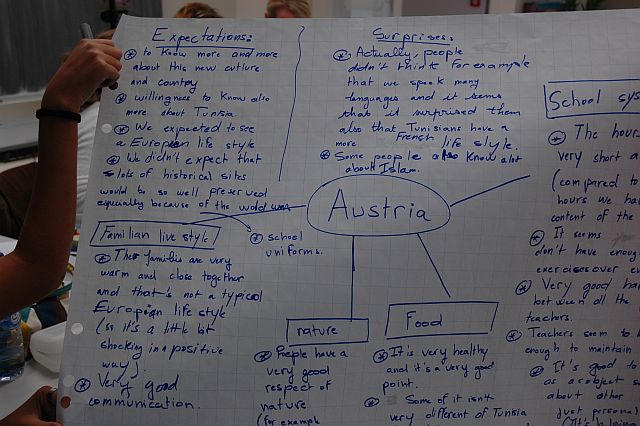 Expectations:
⊛ to know more and more
about this new culture
and country
⊛ willingness to know also
more about Tunisia.
⊛ We expected to see
a European life style
⊛ We didn't expect that
lots of historical sites
would be so well preserved
especially because of the world war
Surprises:
⊛ Actually, people
didn't think for example
that we speak many
languages and it seems
that it surprised them
also that Tunisians have a
more French life style.
⊛ Some people also know alot
about Islam.
Austria
Familian live style
⊛ Ther families are very
warm and close together
and that's not a typical
European life style
(so it's a little bit
shocking in a positive
way).
⊛ Very good
communication.
⊛ school
uniforms.
nature
⊛ People have a
very good
respect of
nature
(for example
Food
⊛ It is very healthy
and it's a very good
point.
⊛ Some of it isn't
very different of Tunisia
School sys
⊛ The hour
very short a
(compared to
hours we ha
content of the
⊛ It seems
don't have enoug
exercises over ev
⊛ Very good ha
between all the
teachers.
⊛ Teachers seem to b
enough to maintain
⊛ It's good to
as a object
about other
just personal